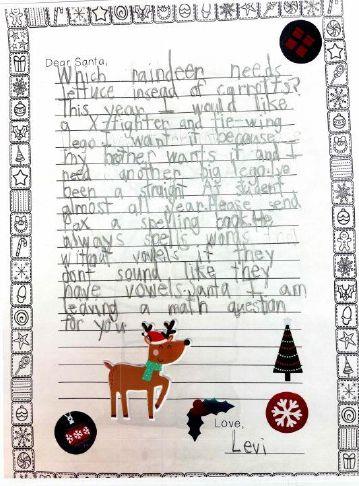 Dear Santa,
Which raindeer needs
lettuce insead of carrotts?
This year I would like
a X-fighter and tie-wing
lego. I want it because
my bother wants it and I
need another big lego. Ive
been a straight A+ student
almost all year. Please send
Pax a spelling book. He
always spells words
without vowels if they
dont sound like they
have vowels. Santa I am
leaving a math question
for you
Love,
Levi